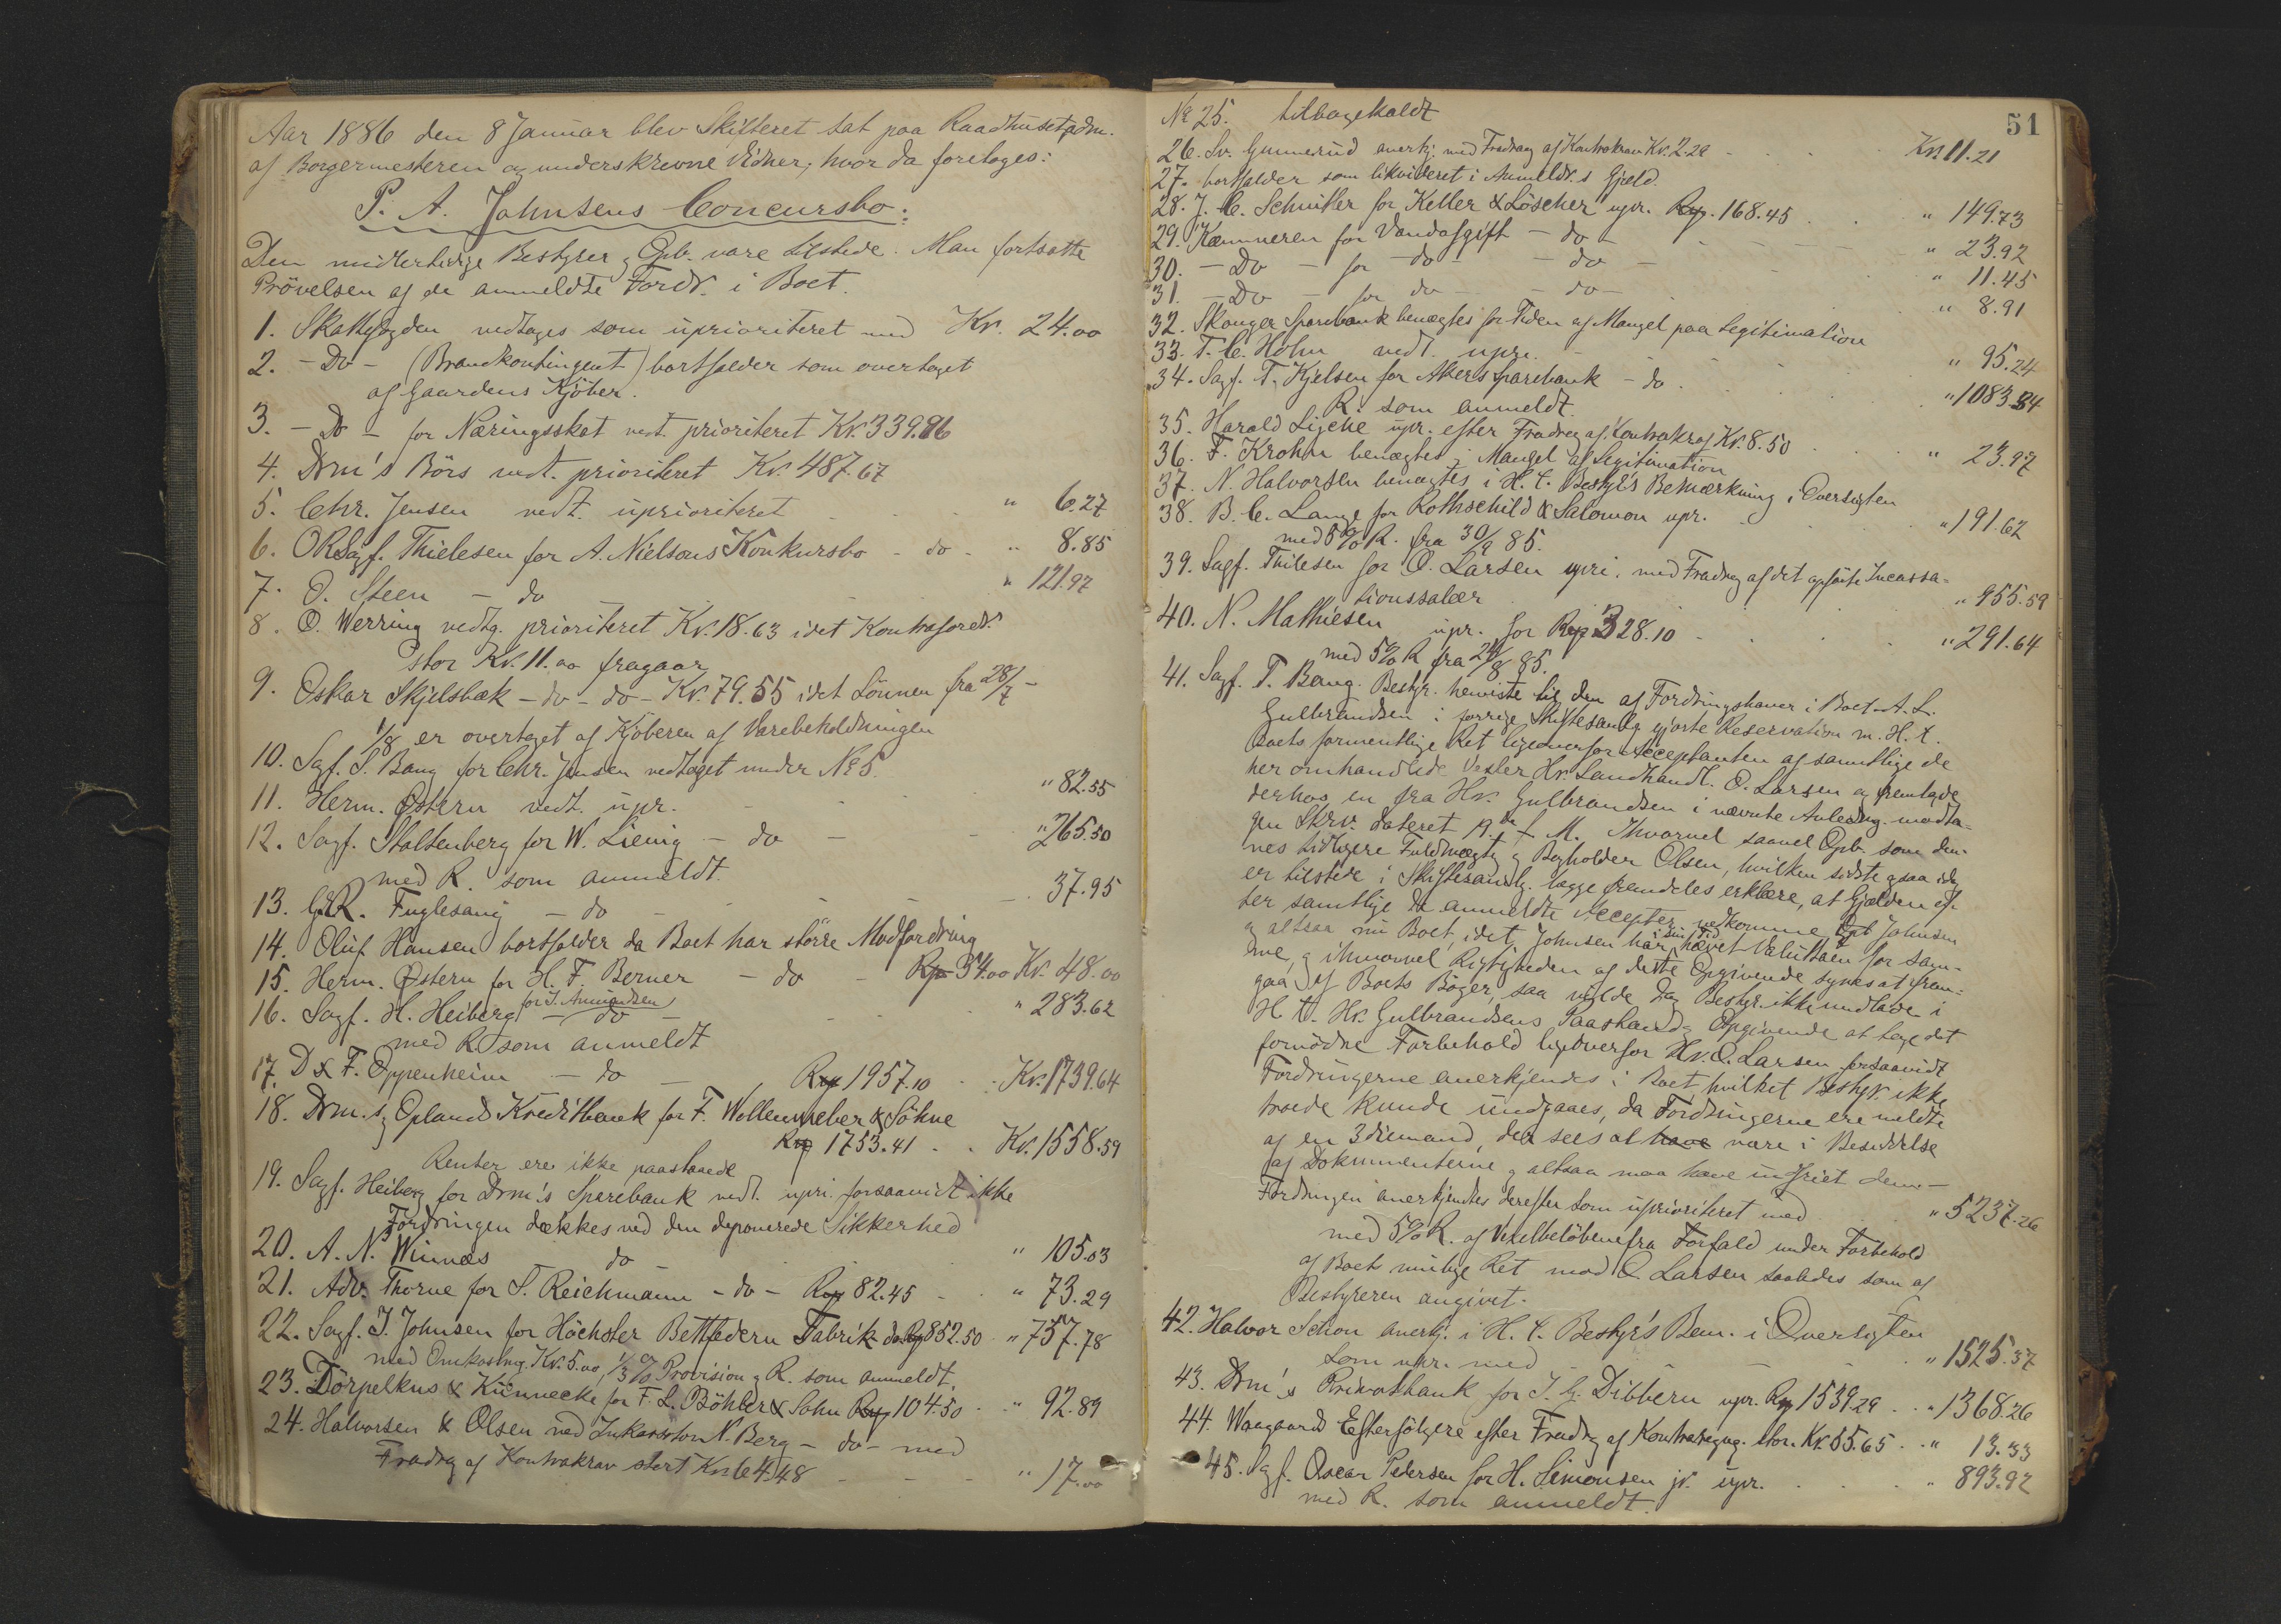 Aar 1886 den 8 Januar blev Skifteret sat paa Raadhuset adm.
af Borgermesteren og underskrevne Vidner, hvor da foretoges:
P. A. Johnsens Concursbo:
Den midlertidige Bestyrer og Opb. vare tilstede. Man fortsatte
Prövelsen af de anmeldte Fordr. i Boet.
1. Skattefogden vedtoges som uprioriteret med Kr. 24.00
2. - Do - (Brandkontingent) bortfalder som overtaget
af Gaardens Kjöber.
3. - Do - for Næringsskat vedt. prioriteret Kr. 339.86
4. Drm's Börs vedt. prioriteret Kr. 487.67
5. Chr. Jensen vedt. uprioriteret " 6.27
6. ORSagf. Thielesen for A. Nielsens Konkursbo - do - " 8.85
7. O. Steen - do - " 121.97
8. O. Werring vedtg. prioriteret Kr. 18.63 idet Kontrafordr.
stor Kr. 11.00 fragaar
9. Oskar Skjelsbæk - do - do - Kr. 79.55 idet Lönnen fra 28/7 -
1/8 er overtaget af Kjöberen af Varebeholdningen
10. Sagf. S. Bang for Chr. Jensen vedtaget under No 5.
11. Herm. Østern vedt. upr. " 82.55
12. Sagf. Stoltenberg for W. Lienig - do - " 265.50
med R. som anmeldt.
13. G&R. Fuglesang - do - 37.95
14. Oluf Hansen bortfalder da Boet har större Modfordring
15. Herm. Østern for H. F. Berner - do - Rp 54.00 Kr. 48.00
16. Sagf. H. Heiberg for J. Amundsen - do - " 283.62
med R. som anmeldt
17. D & F. Oppenheim - do - Rp 1957.10 Kr. 1739.64
18. Drm.s og Oplands Kreditbank for F. Wollenweber & Söhne
Rp 1753.41 Kr. 1558.59
Renter ere ikke paastaaede
19. Sagf. Heiberg for Drm.'s Sparebank vedt. upri. forsaavidt ikke
Fordringen dækkes ved den deponerede Sikkerhed
20. A. N. Winnæs do " 105.03
21. Adv. Thorne for S. Reichmann - do - Rp 82.45 " 73.29
22. Sagf. J. Johnsen for Höchster Bettfedern Fabrik do Rp 852.50 " 757.78
med Omkostng. Kr. 5.00, 1/3 % Provision og R. som anmeldt.
23. Dörpelkus & Künnecke for F. L. Böhler & Sohn Rp 104.50 " 92.89
24. Halvorsen & Olsen ved Inkassator N. Berg - do - med
Fradrag af Kontrakrav stort Kr. 64.48 " 17.00
51
No 25. tilbagekaldt
26. Sv. Gunnerud anerkj. med Fradrag af Kontrakrav Kr. 2.20 Kr. 11.21
27. bortfalder som likvideret i Anmeldr.s Gjæld.
28. J. C. Schniller for Keller & Löscher upr. Rp. 168.45 " 149.73
29. Kæmneren for Vandafgift - do - " 23.92
30. - Do - for - do - - do - " 11.45
31. - Do - for do - - do - " 8.91
32. Skouger Sparebank benægtes for Tiden af Mangel paa Legitimation
33. T. C. Holm vedt. upr. " 95.24
34. Sagf. T. Kjelsen for Akers Sparebank - do. " 1083.84
R. som anmeldt.
35. Harald Lyche upr. efter Fradrag af Kontrakrav Kr. 8.50 " 23.97
36. F. Krohn benægtes i Mangel af Legitimation
37. N. Halvorsen benægtes i H. t. Bestyr's Bemærkning i Oversigten
38. B. C. Lange for Rothschild & Salomon upr. " 191.62
med 5% R. fra 30/9 85.
39. Sagf. Thilesen for O. Larsen upri. med Fradrag af det opförte Incassa-
tionssalær " 955.59
40. N. Mathiesen upr. for Rp 328.10 " 291.64
med 5% R fra 24/8 85.
41. Sagf. T. Bang. Bestyr. henviste til den af Fordringshaver i Boet A. L.
Gulbrandsen i forrige Skiftesamlg gjorte Reservation m. H. t.
Boets formentlige Ret ligeoverfor Acceptanten af samtlige de
her omhandlede Vexler Hr. Landhandl. O. Larsen og fremlagde
derhos en fra Hr. Gulbrandsen i nævnte Anledng. modta-
gen Skriv. dateret 19. de f. M. Ihvorvel saavel Opb. som den-
nes tidligere Fuldmægtg og Bogholder Olsen, hvilken sidste ogsaa idag
er tilstede i Skiftesamlg. begge fremdeles erklære, at Gjælden ef-
ter samtlige de anmeldte Accepter vedkomme Opb Johnsen
og altsaa nu Boet, idet Johnsen har i sin Tid hævet Valuttaen for sam-
me, og ihvorvel Rigtigheden af dette Opgivende synes at frem-
gaa af Boets Böger, saa vilde dog Bestyr. ikke undlade i
H. t. Hr. Gulbrandsens Paastand og Opgivende at tage det
fornödne Forbehold ligeoverfor Hr. O. Larsen forsaavidt
Fordringerne anerkjendes i Boet, hvilket Bestyr. ikke
troede kunde undgaaes, da Fordringerne ere meldte
af en 3diemand, der sees at have være i Besiddelse
af Dokumenterne og altsaa maa have indfriet dem. -
Fordringen anerkjendtes derefter som uprioriteret med " 5237.26
med 5% R. af Vexelbelöbene fra Forfald under Forbehold
af Boets mulige Ret mod O. Larsen saaledes som af
Bestyreren angivet.
42. Halvor Schou anerkj. i H. t. Bestyr's Bem. i Oversigten
som upr. med " 1525.37
43. Drm's Privatbank for J. G. Dibbern upr. Rp 1539.29 " 1368.26
44. Waagaards Efterfölgere efter Fradrag af Kontraregng. stor. Kr. 55.65 " 13.33
45. Sagf. Oscar Pedersen for H. Simonsen jr. upr. " 893.92
med R. som anmeldt.